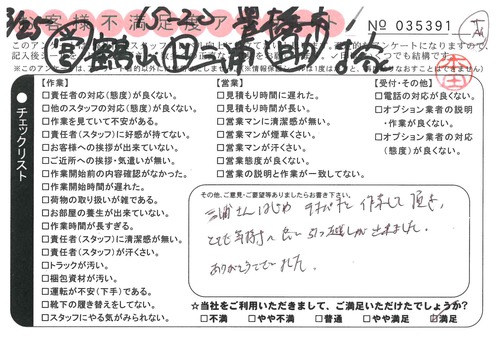 3/25 15-20 豊橋市
お客様不満足度アンケート
№ 035391
チェックリスト
【作業】
□責任者の対応(態度)が良くない。
□他のスタッフの対応(態度)が良くない。
□作業を見ていて不安がある。
□責任者(スタッフ)に好感が持てない。
□お客様への挨拶が出来ていない。
□ご近所への挨拶・気遣いが無い。
□作業開始前の内容確認がなかった。
□作業開始時間が遅れた。
□荷物の取り扱いが雑である。
□お部屋の養生が出来ていない。
□作業時間が長すぎる。
□責任者(スタッフ)に清潔感が無い。
□責任者(スタッフ)が汗くさい。
□トラックが汚い。
□梱包資材が汚い。
□運転が不安(下手)である。
□靴下の履き替えをしてない。
□スタッフにやる気がみられない。
【営業】
□見積もり時間に遅れた。
□見積もり時間が長い。
□営業マンに清潔感が無い。
□営業マンが煙草くさい。
□営業マンが汗くさい。
□営業態度が良くない。
□営業の説明と作業が一致してない。
【受付・その他】
□電話の対応が良くない。
□オプション業者の説明・作業が良くない。
□オプション業者の対応(態度)が良くない。
その他、ご意見・ご要望等ありましたらお書き下さい。
三浦さんはじめ テキパキと 作業して 頂き、
とても気持ちの良い引っ越しが出来ました。
ありがとうございました。
☆当社をご利用いただきまして、ご満足いただけたでしょうか?
□不満 □やや不満 □普通 □やや満足 ☑満足